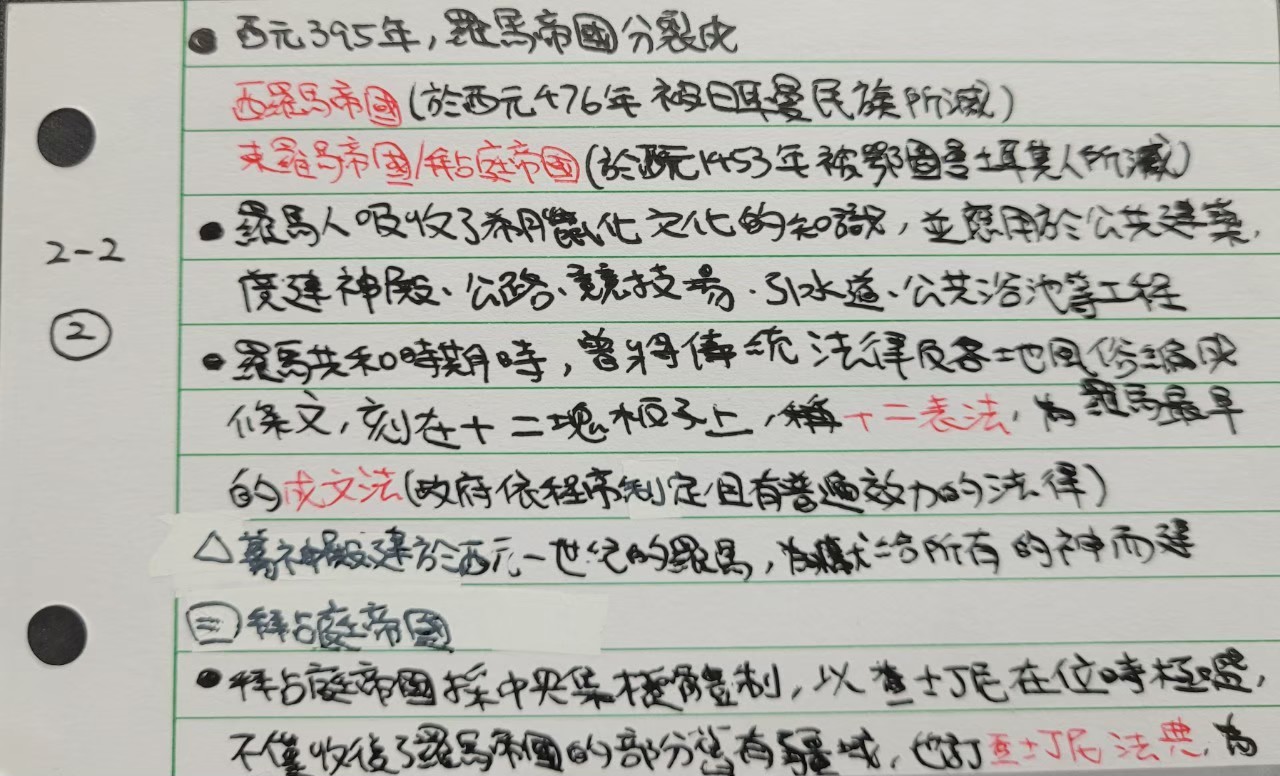 ● 西元395年，羅馬帝國分裂成
西羅馬帝國(於西元476年被日耳曼民族所滅)
東羅馬帝國/拜占庭帝國(於西元1453年被鄂圖曼土耳其人所滅)
2-2
● 羅馬人吸收了希臘化文化的知識，並應用於公共建築，
②
廣建神殿、公路、競技場、引水道、公共浴池等工程
● 羅馬共和時期時，曾將傳統法律及各地風俗編成
條文，刻在十二塊板子上，稱十二表法，為羅馬最早
的成文法(政府依程序制定但有普遍效力的法律)
△萬神殿建於西元一世紀的羅馬，為獻給所有的神而建
㊂拜占庭帝國
● 拜占庭帝國採中央集極體制，以查士丁尼在位時極盛，
不僅收復了羅馬帝國的部分舊有疆域，也訂查士丁尼法典，為